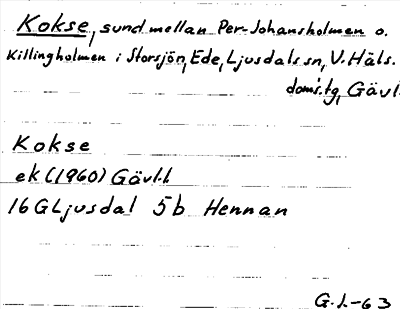 Kokse, sund mellan Per-Johansholmen o.
Killingholmen i Storsjön, Ede, Ljusdals sn, V. Häls.
doms.tg, Gävl.
Kokse
ek (1960) Gävl.l
16G Ljusdal 5b Hennan
G.L-63